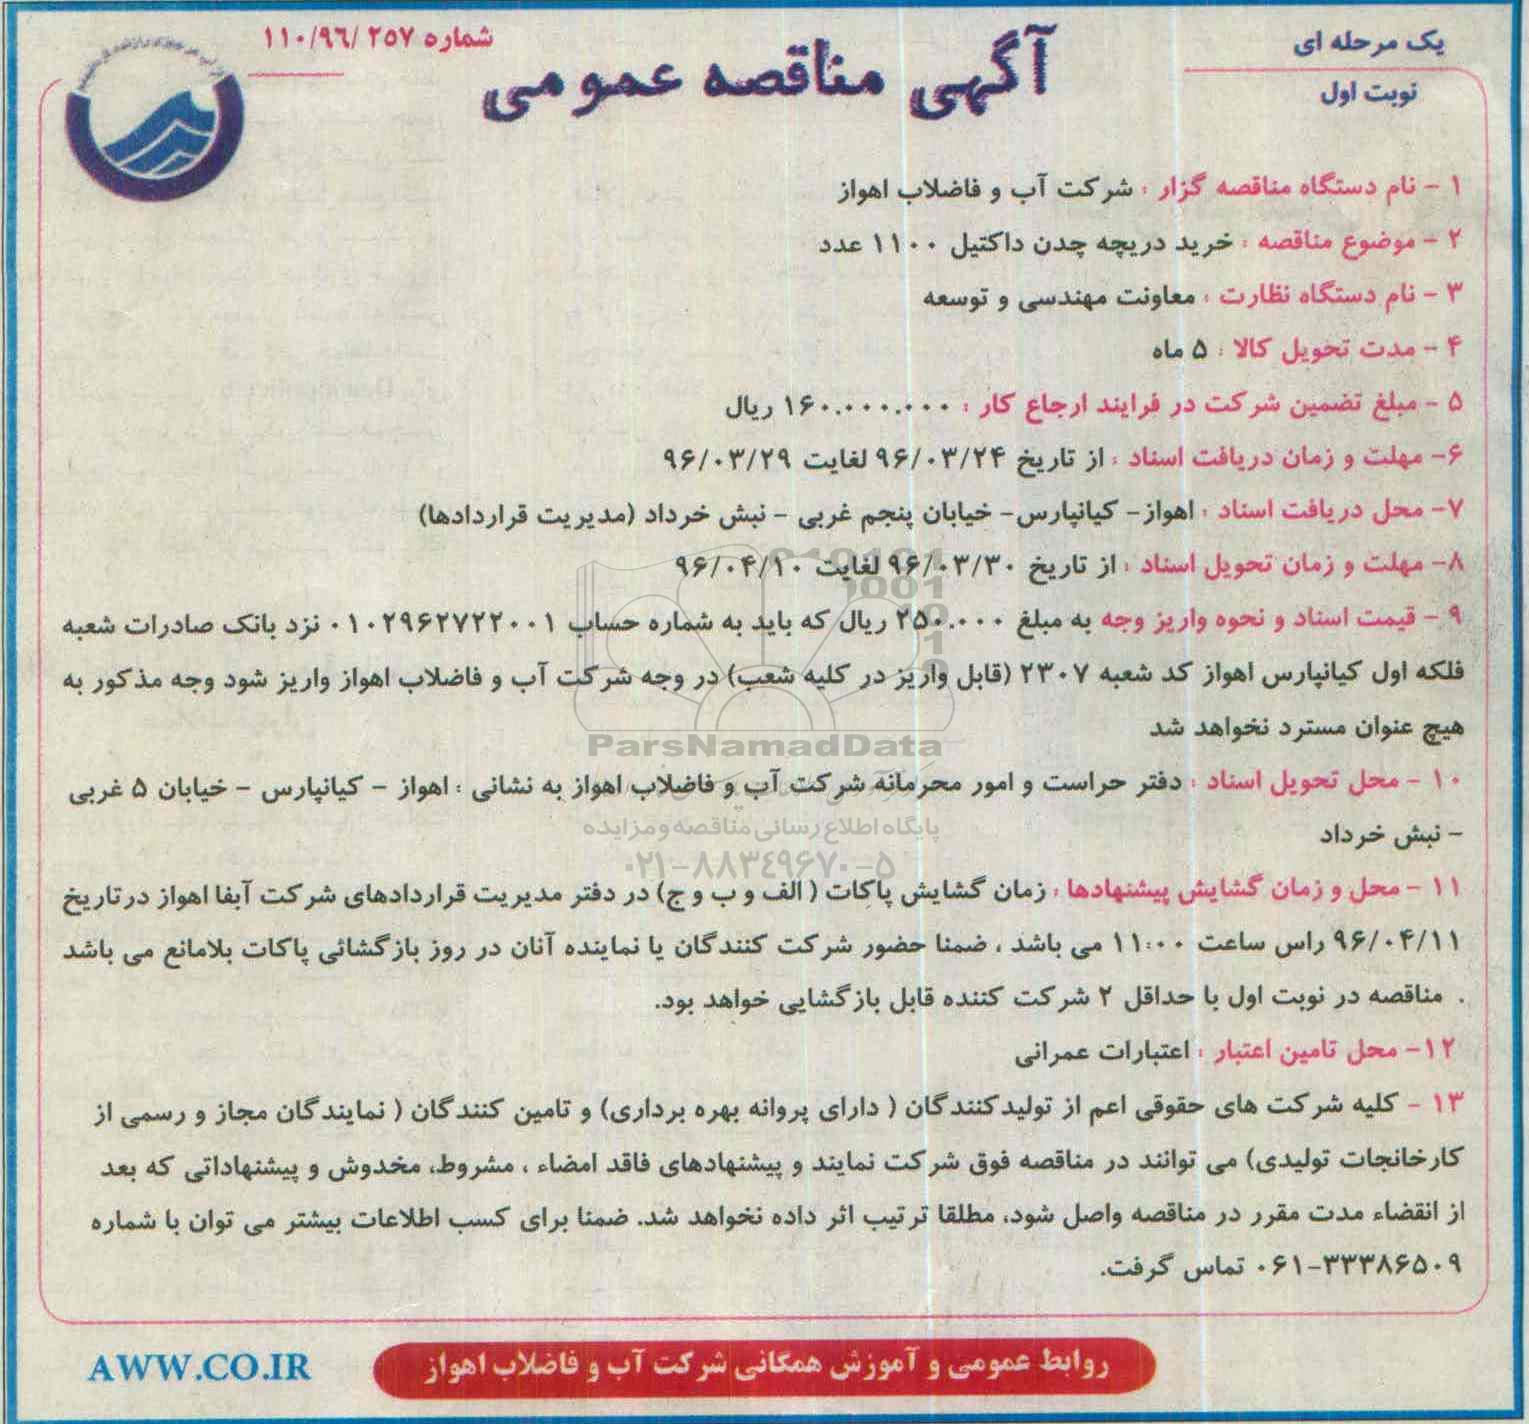 یک مرحله ای
نوبت اول
آگهی مناقصه عمومی
شماره ۲۵۷ /۱۱۰/۹۶
۱ - نام دستگاه مناقصه گزار : شرکت آب و فاضلاب اهواز
۲ - موضوع مناقصه : خرید دریچه چدن داکتیل ۱۱۰۰ عدد
۳ - نام دستگاه نظارت : معاونت مهندسی و توسعه
۴ - مدت تحویل کالا : ۵ ماه
۵ - مبلغ تضمین شرکت در فرایند ارجاع کار : ۱۶۰.۰۰۰.۰۰۰ ریال
۶- مهلت و زمان دریافت اسناد : از تاریخ ۹۶/۰۳/۲۴ لغایت ۹۶/۰۳/۲۹
۷- محل دریافت اسناد : اهواز- کیانپارس- خیابان پنجم غربی - نبش خرداد (مدیریت قراردادها)
۸- مهلت و زمان تحویل اسناد : از تاریخ ۹۶/۰۳/۳۰ لغایت ۹۶/۰۴/۱۰
۹ - قیمت اسناد و نحوه واریز وجه به مبلغ ۲۵۰.۰۰۰ ریال که باید به شماره حساب ۰۱۰۲۹۶۲۷۲۲۰۰۱ نزد بانک صادرات شعبه
فلکه اول کیانپارس اهواز کد شعبه ۲۳۰۷ (قابل واریز در کلیه شعب) در وجه شرکت آب و فاضلاب اهواز واریز شود وجه مذکور به
هیچ عنوان مسترد نخواهد شد
ParsNamadData
۱۰ - محل تحویل اسناد : دفتر حراست و امور محرمانه شرکت آب و فاضلاب اهواز به نشانی : اهواز - کیانپارس - خیابان ۵ غربی
- نبش خرداد
پایگاه اطلاع رسانی مناقصه و مزایده
۰۲۱-۸۸۳۴۹۶۷۰-۵
۱۱ - محل و زمان گشایش پیشنهادها : زمان گشایش پاکات ( الف و ب و ج) در دفتر مدیریت قراردادهای شرکت آبفا اهواز درتاریخ
۹۶/۰۴/۱۱ راس ساعت ۱۱:۰۰ می باشد ، ضمنا حضور شرکت کنندگان یا نماینده آنان در روز بازگشائی پاکات بلامانع می باشد
. مناقصه در نوبت اول با حداقل ۲ شرکت کننده قابل بازگشایی خواهد بود.
۱۲- محل تامین اعتبار : اعتبارات عمرانی
۱۳ - کلیه شرکت های حقوقی اعم از تولیدکنندگان ( دارای پروانه بهره برداری) و تامین کنندگان ( نمایندگان مجاز و رسمی از
کارخانجات تولیدی) می توانند در مناقصه فوق شرکت نمایند و پیشنهادهای فاقد امضاء ، مشروط، مخدوش و پیشنهاداتی که بعد
از انقضاء مدت مقرر در مناقصه واصل شود، مطلقا ترتیب اثر داده نخواهد شد. ضمنا برای کسب اطلاعات بیشتر می توان با شماره
۰۶۱-۳۳۳۸۶۵۰۹ تماس گرفت.
روابط عمومی و آموزش همگانی شرکت آب و فاضلاب اهواز
AWW.CO.IR